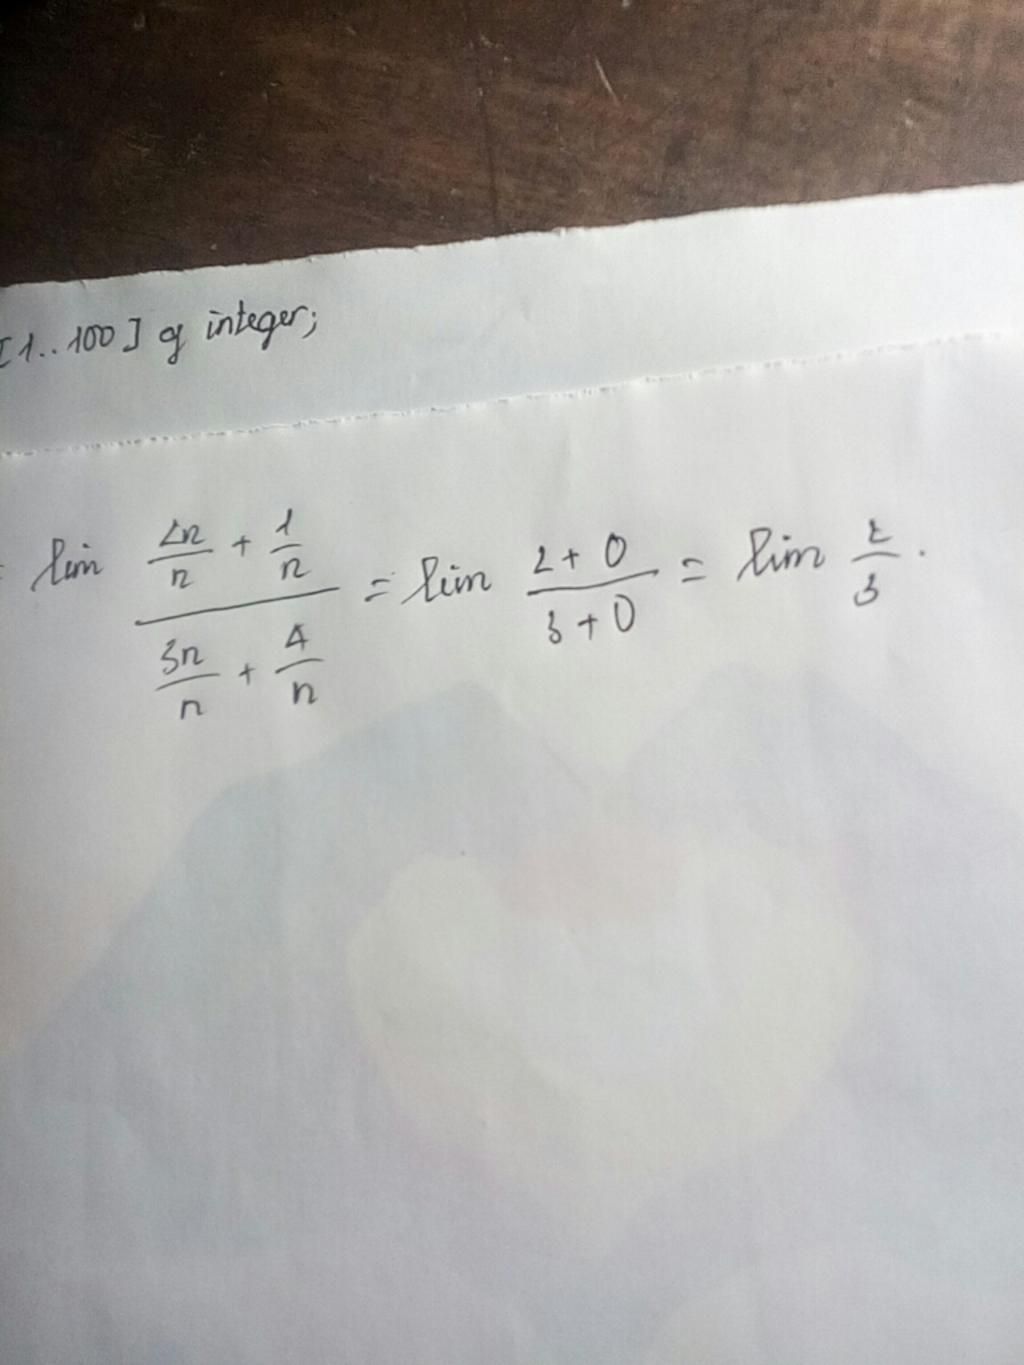 [1..100] of integer;
= lim (2n/n + 1/n)/(3n/n + 4/n) = lim (2+0)/(3+0) = lim 2/3.